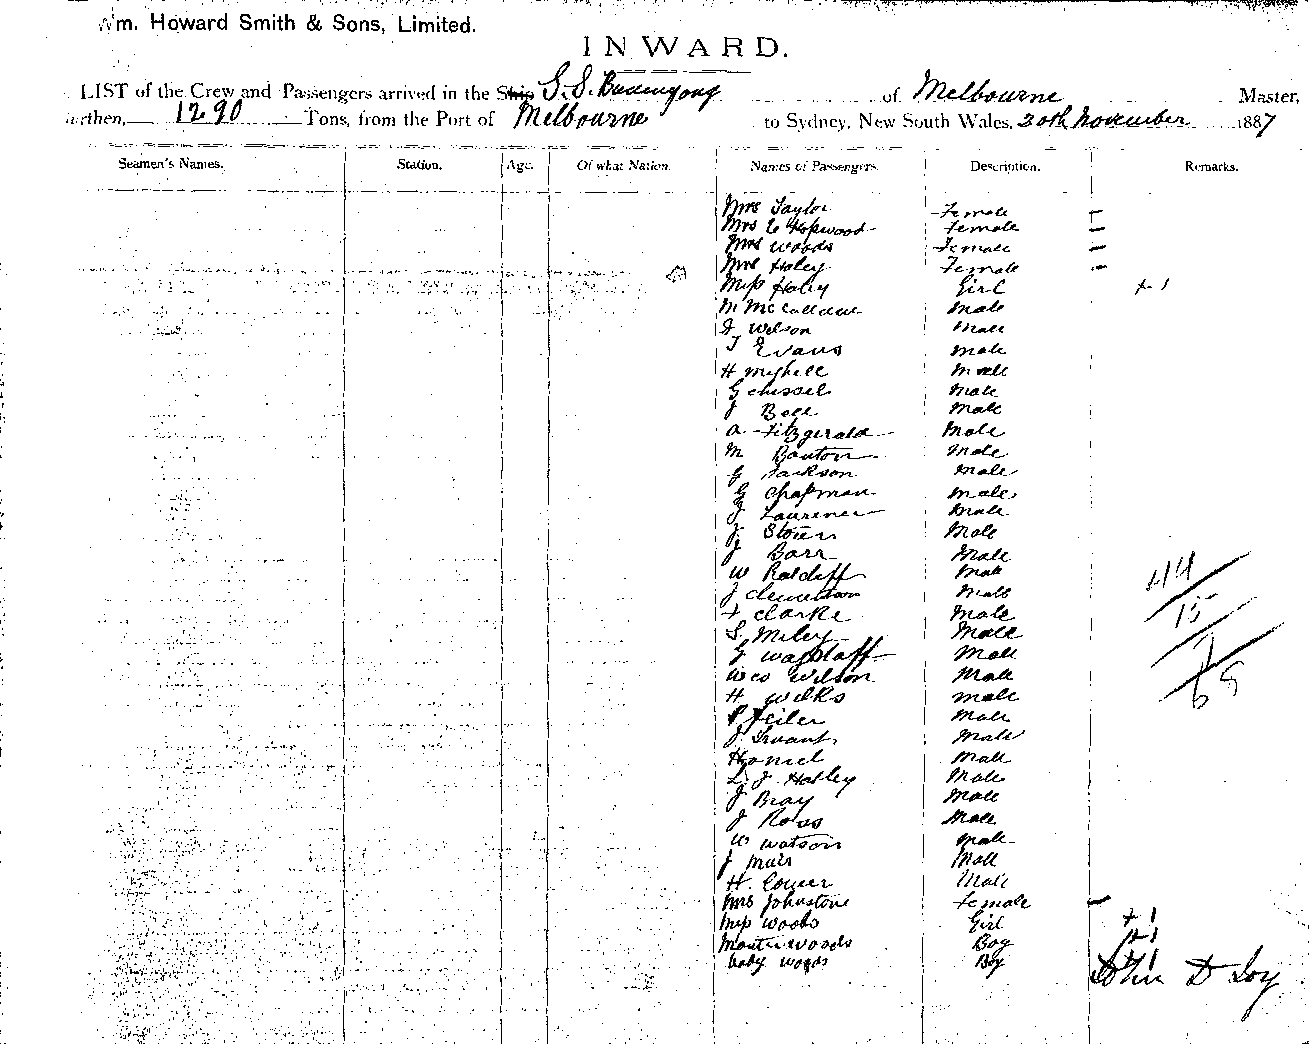 Wm. Howard Smith & Sons, Limited.
INWARD.
LIST of the Crew and Passengers arrived in the Ship S.S. Buninyong of Melbourne Master,
Burthen, 1290 Tons, from the Port of Melbourne to Sydney, New South Wales, 30th November 1887
Seamen's Names. Station. Age. Of what Nation. Names of Passengers. Description. Remarks.
Mrs Taylor Female –
Mrs C Hopwood Female –
Mrs Woods Female –
Mrs Haley Female –
Miss Haley Girl + 1
M McCallum Male
J Wilson Male
T Evans Male
H Myhill Male
G Chissel Male
J Bell Male
A Fitzgerald Male
M Bouton Male
G Jackson Male
G Chapman Male
J Laurence Male
J Male
J Barr Male
W Ratcliff Male
J Male
+ Clarke Male
S Miley Male
G Wagstaff Male
Wes Wilson Male
H Wilks Male
P Feiler Male
J Male
Male
L J Hatley Male
J Bray Male
J Ross Male
W Watson Male
J Muir Male
H. Male
Mrs Johnstone Female –
Miss Woods Girl + 1
Master Woods Boy + 1
baby Woods Boy + 1
44
15
7
68
John D Loy